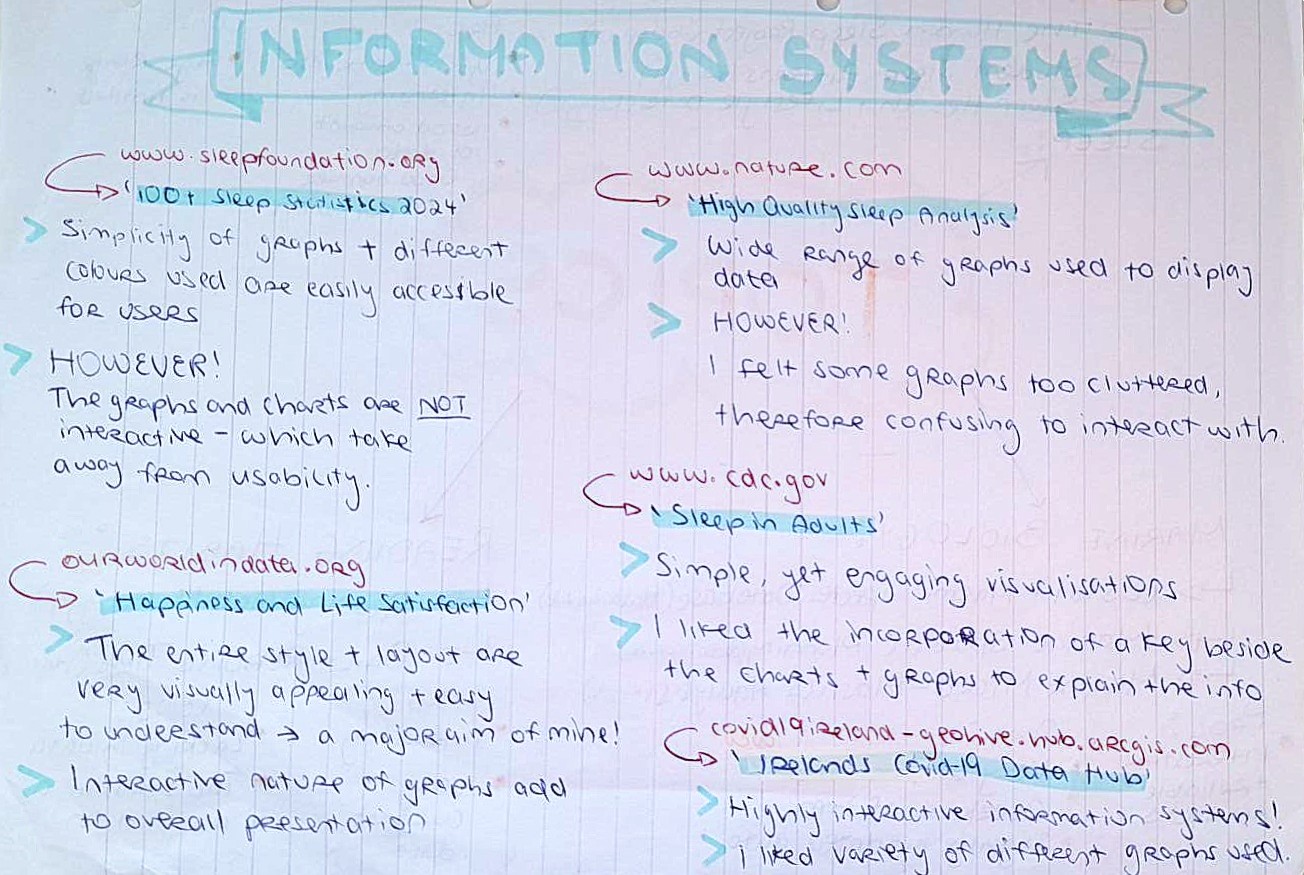 INFORMATION SYSTEMS
www.sleepfoundation.org
'100+ Sleep Statistics 2024'
> Simplicity of graphs + different
colours used are easily accessible
for users
> HOWEVER!
The graphs and charts are NOT
interactive - which take
away from usability.
ourworldindata.org
'Happiness and Life Satisfaction'
> The entire style + layout are
very visually appealing + easy
to understand → a major aim of mine!
> Interactive nature of graphs add
to overall presentation
www.nature.com
'High Quality Sleep Analysis'
> Wide range of graphs used to display
data
> HOWEVER!
I felt some graphs too cluttered,
therefore confusing to interact with.
www.cdc.gov
'Sleep in Adults'
> Simple, yet engaging visualisations
> I liked the incorporation of a key beside
the charts + graphs to explain the info
covid19ireland-geohive.hub.arcgis.com
'Irelands Covid-19 Data Hub'
> Highly interactive information systems!
> i liked variety of different graphs used.